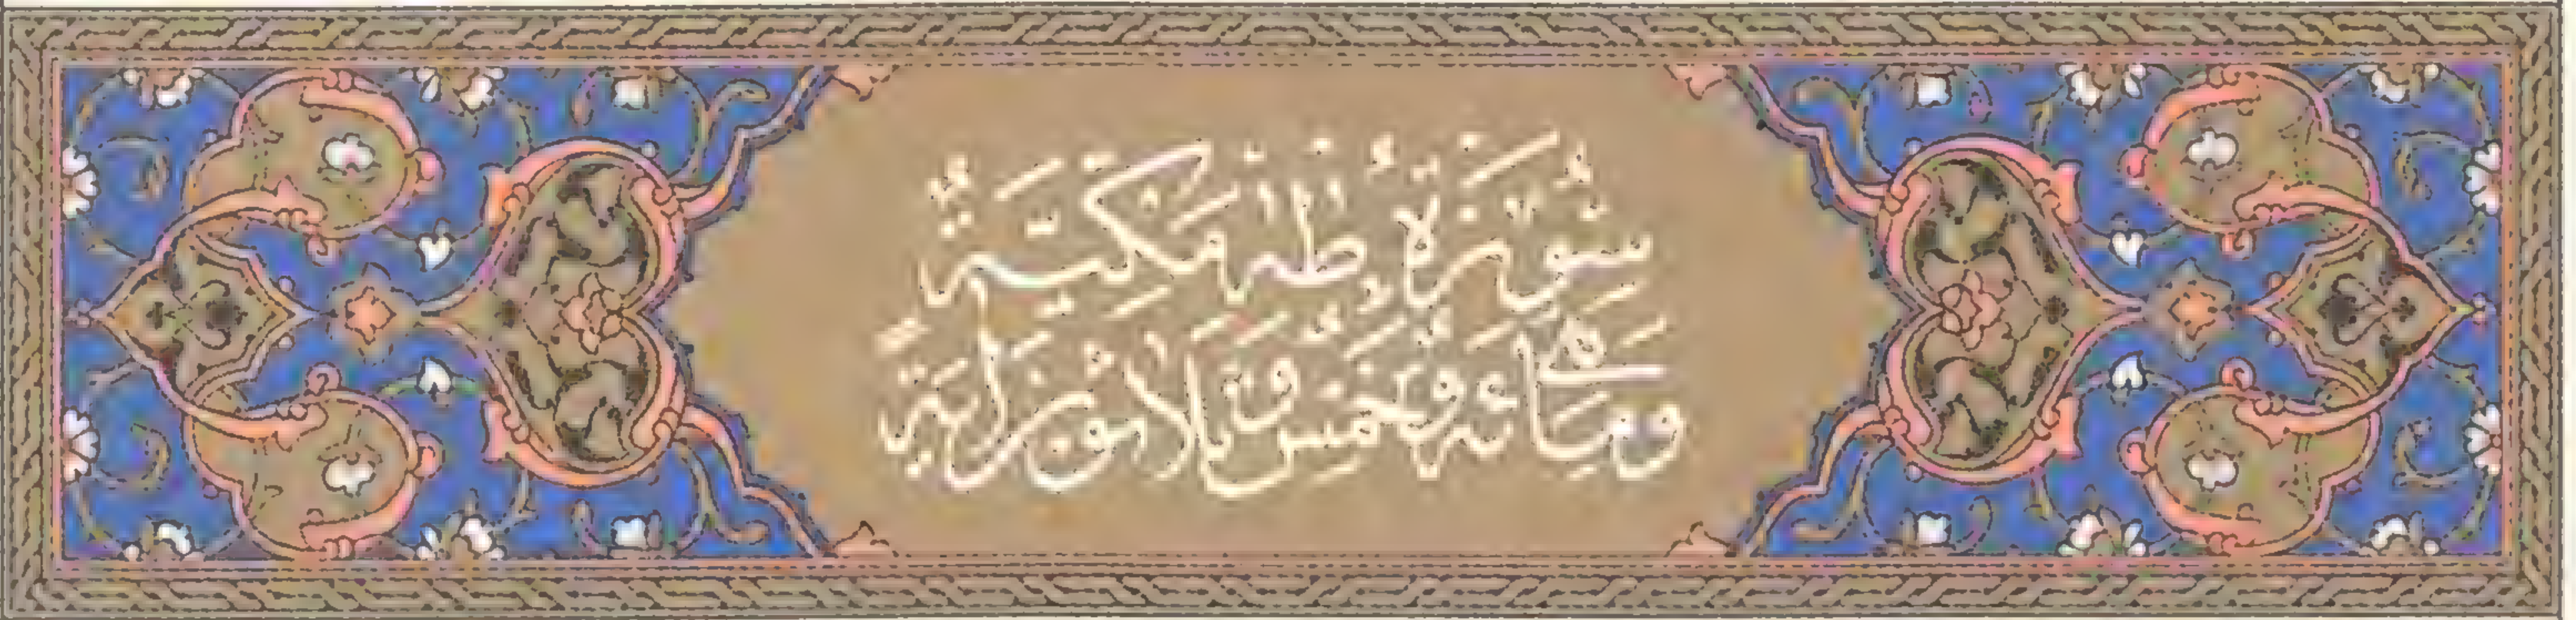 سُورَةُ طٰهٰ مَكِّيَّةٌ
وَهِيَ مِائَةٌ وَخَمْسٌ وَثَلَاثُونَ اٰيَةً